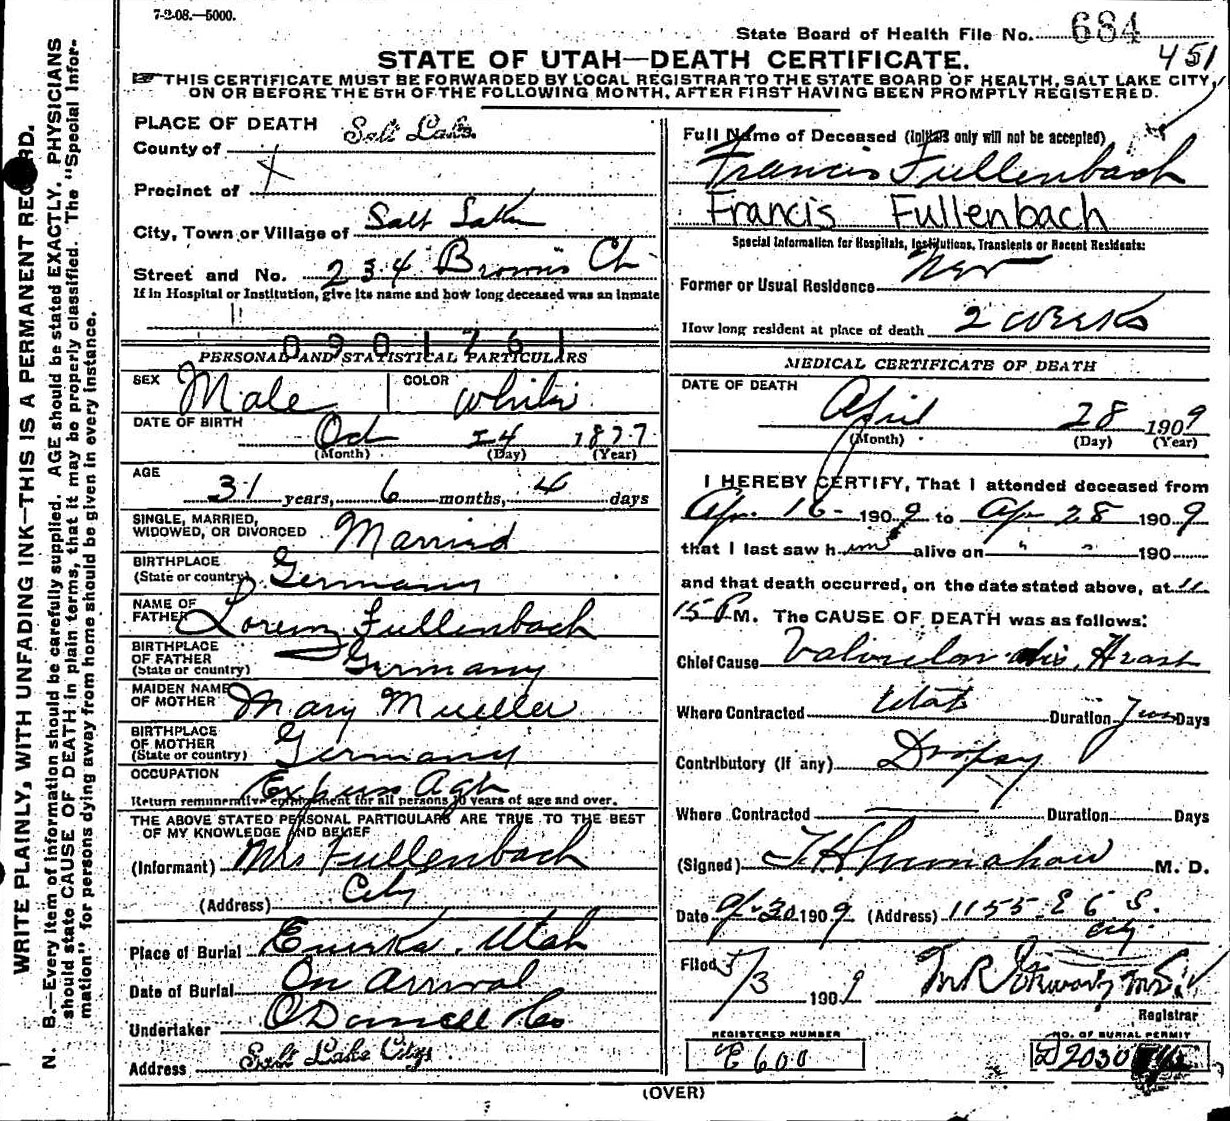 7-2-08.—5000.
State Board of Health File No. 684
451
STATE OF UTAH—DEATH CERTIFICATE.
THIS CERTIFICATE MUST BE FORWARDED BY LOCAL REGISTRAR TO THE STATE BOARD OF HEALTH, SALT LAKE CITY,
ON OR BEFORE THE 5TH OF THE FOLLOWING MONTH, AFTER FIRST HAVING BEEN PROMPTLY REGISTERED.
WRITE PLAINLY, WITH UNFADING INK—THIS IS A PERMANENT RECORD.
N. B.—Every item of information should be carefully supplied. AGE should be stated EXACTLY. PHYSICIANS
should state CAUSE OF DEATH in plain terms, that it may be properly classified. The "Special Infor-
mation" for persons dying away from home should be given in every instance.
PLACE OF DEATH
County of Salt Lake
Precinct of
City, Town or Village of Salt Lake
Street and No. 234 Browns Ct
If in Hospital or Institution, give its name and how long deceased was an inmate
0901761
PERSONAL AND STATISTICAL PARTICULARS
SEX Male COLOR White
DATE OF BIRTH Oct 24 1877
(Month) (Day) (Year)
AGE 31 years, 6 months, 4 days
SINGLE, MARRIED,
WIDOWED, OR DIVORCED Married
BIRTHPLACE
(State or country) Germany
NAME OF
FATHER Lorenz Fullenbach
BIRTHPLACE
OF FATHER
(State or country) Germany
MAIDEN NAME
OF MOTHER Mary Mueller
BIRTHPLACE
OF MOTHER
(State or country) Germany
OCCUPATION Express Agt
Return remunerative employment for all persons 10 years of age and over.
THE ABOVE STATED PERSONAL PARTICULARS ARE TRUE TO THE BEST
OF MY KNOWLEDGE AND BELIEF
(Informant) Mrs Fullenbach
(Address) City
Place of Burial Eureka, Utah
Date of Burial On Arrival
Undertaker O'Donnell &co
Address Salt Lake City
Full Name of Deceased (Initials only will not be accepted)
Francis Fullenbach
Francis Fullenbach
Special Information for Hospitals, Institutions, Transients or Recent Residents:
Former or Usual Residence
How long resident at place of death 2 weeks
MEDICAL CERTIFICATE OF DEATH
DATE OF DEATH
April 28 1909
(Month) (Day) (Year)
I HEREBY CERTIFY, That I attended deceased from
Apr. 16- 1909 to Apr 28 1909
that I last saw him alive on " " 190
and that death occurred, on the date stated above, at 11
15 P M. The CAUSE OF DEATH was as follows:
Chief Cause Valvular dis. Heart
Where Contracted Utah Duration Days
Contributory (If any) Dropsy
Where Contracted Duration Days
(Signed) M. D.
Date 4/30 1909 (Address) 1155 E 6 S.
City
Filed 5/3 1909
Registrar
REGISTERED NUMBER
E600
NO. OF BURIAL PERMIT
D2030
(OVER)